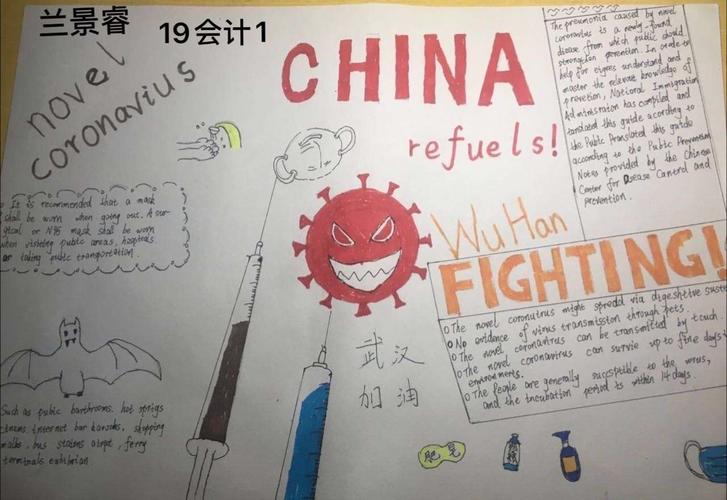 兰景睿 19会计1
novel
coronavius
CHINA
refuels!
The pneumonia caused by novel
coronavirus is a newly-found
disease from which public should
strengthen prevention. In order to
help foreigners understand and
master the relevant knowledge of
prevention, National Immigration
Administration has compiled and
translated this guide according to
the Public Translated this guide
according to the Public Prevention
Notes provided by the Chinese
Center for Disease Control and
prevention.
It is recommended that a mask
shall be worn when going out. A sur-
gical or N95 mask shall be worn
when visiting public areas, hospitals
or taking public transportation.
WuHan
FIGHTING!
o The novel coronutirus might spredd via digeshtive suste
o No evidence of virus transmisstion through pets.
o The novel coronavirus can be transmitted by touch.
o The novel coronavirus can survie up to fine days
environments.
o The people are generally susceptible to the virus,
and the incubation period is within 14 days.
武汉
加油
Such as pubic barthrooms, hot sprigs
internet bar karaoks, shopping
malls, bus stations airpot, ferry
terminals exhibrian
肥皂